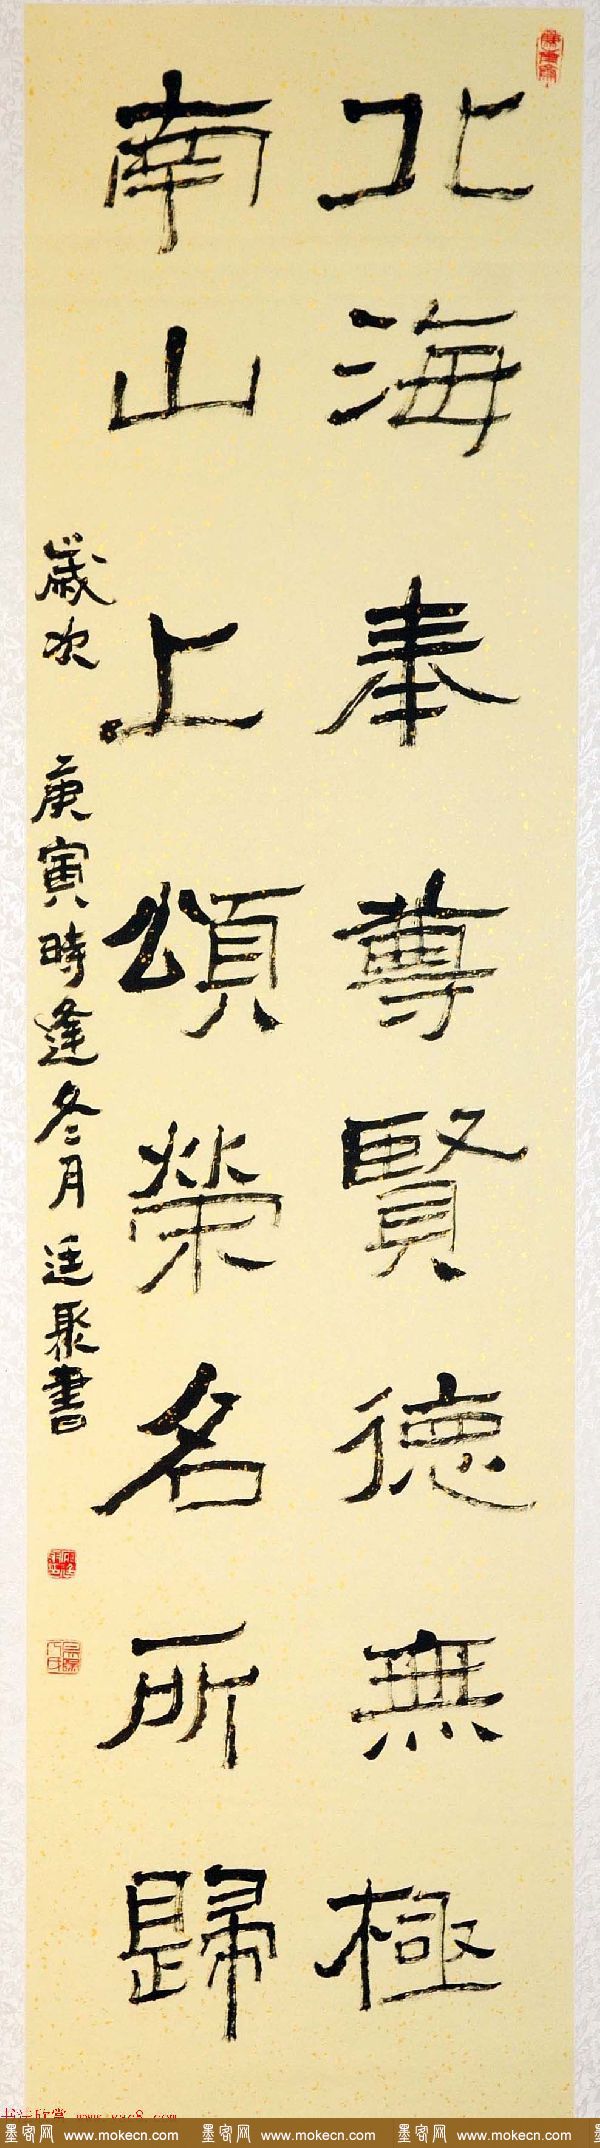 北海奉尊賢德無極
南山上頌榮名所歸
歲次庚寅時逢冬月廷聚書
书法欣赏 www.yac8.com
墨客网 www.mokecn.com 墨客网 www.mokecn.com 墨客网 www.mokecn.com